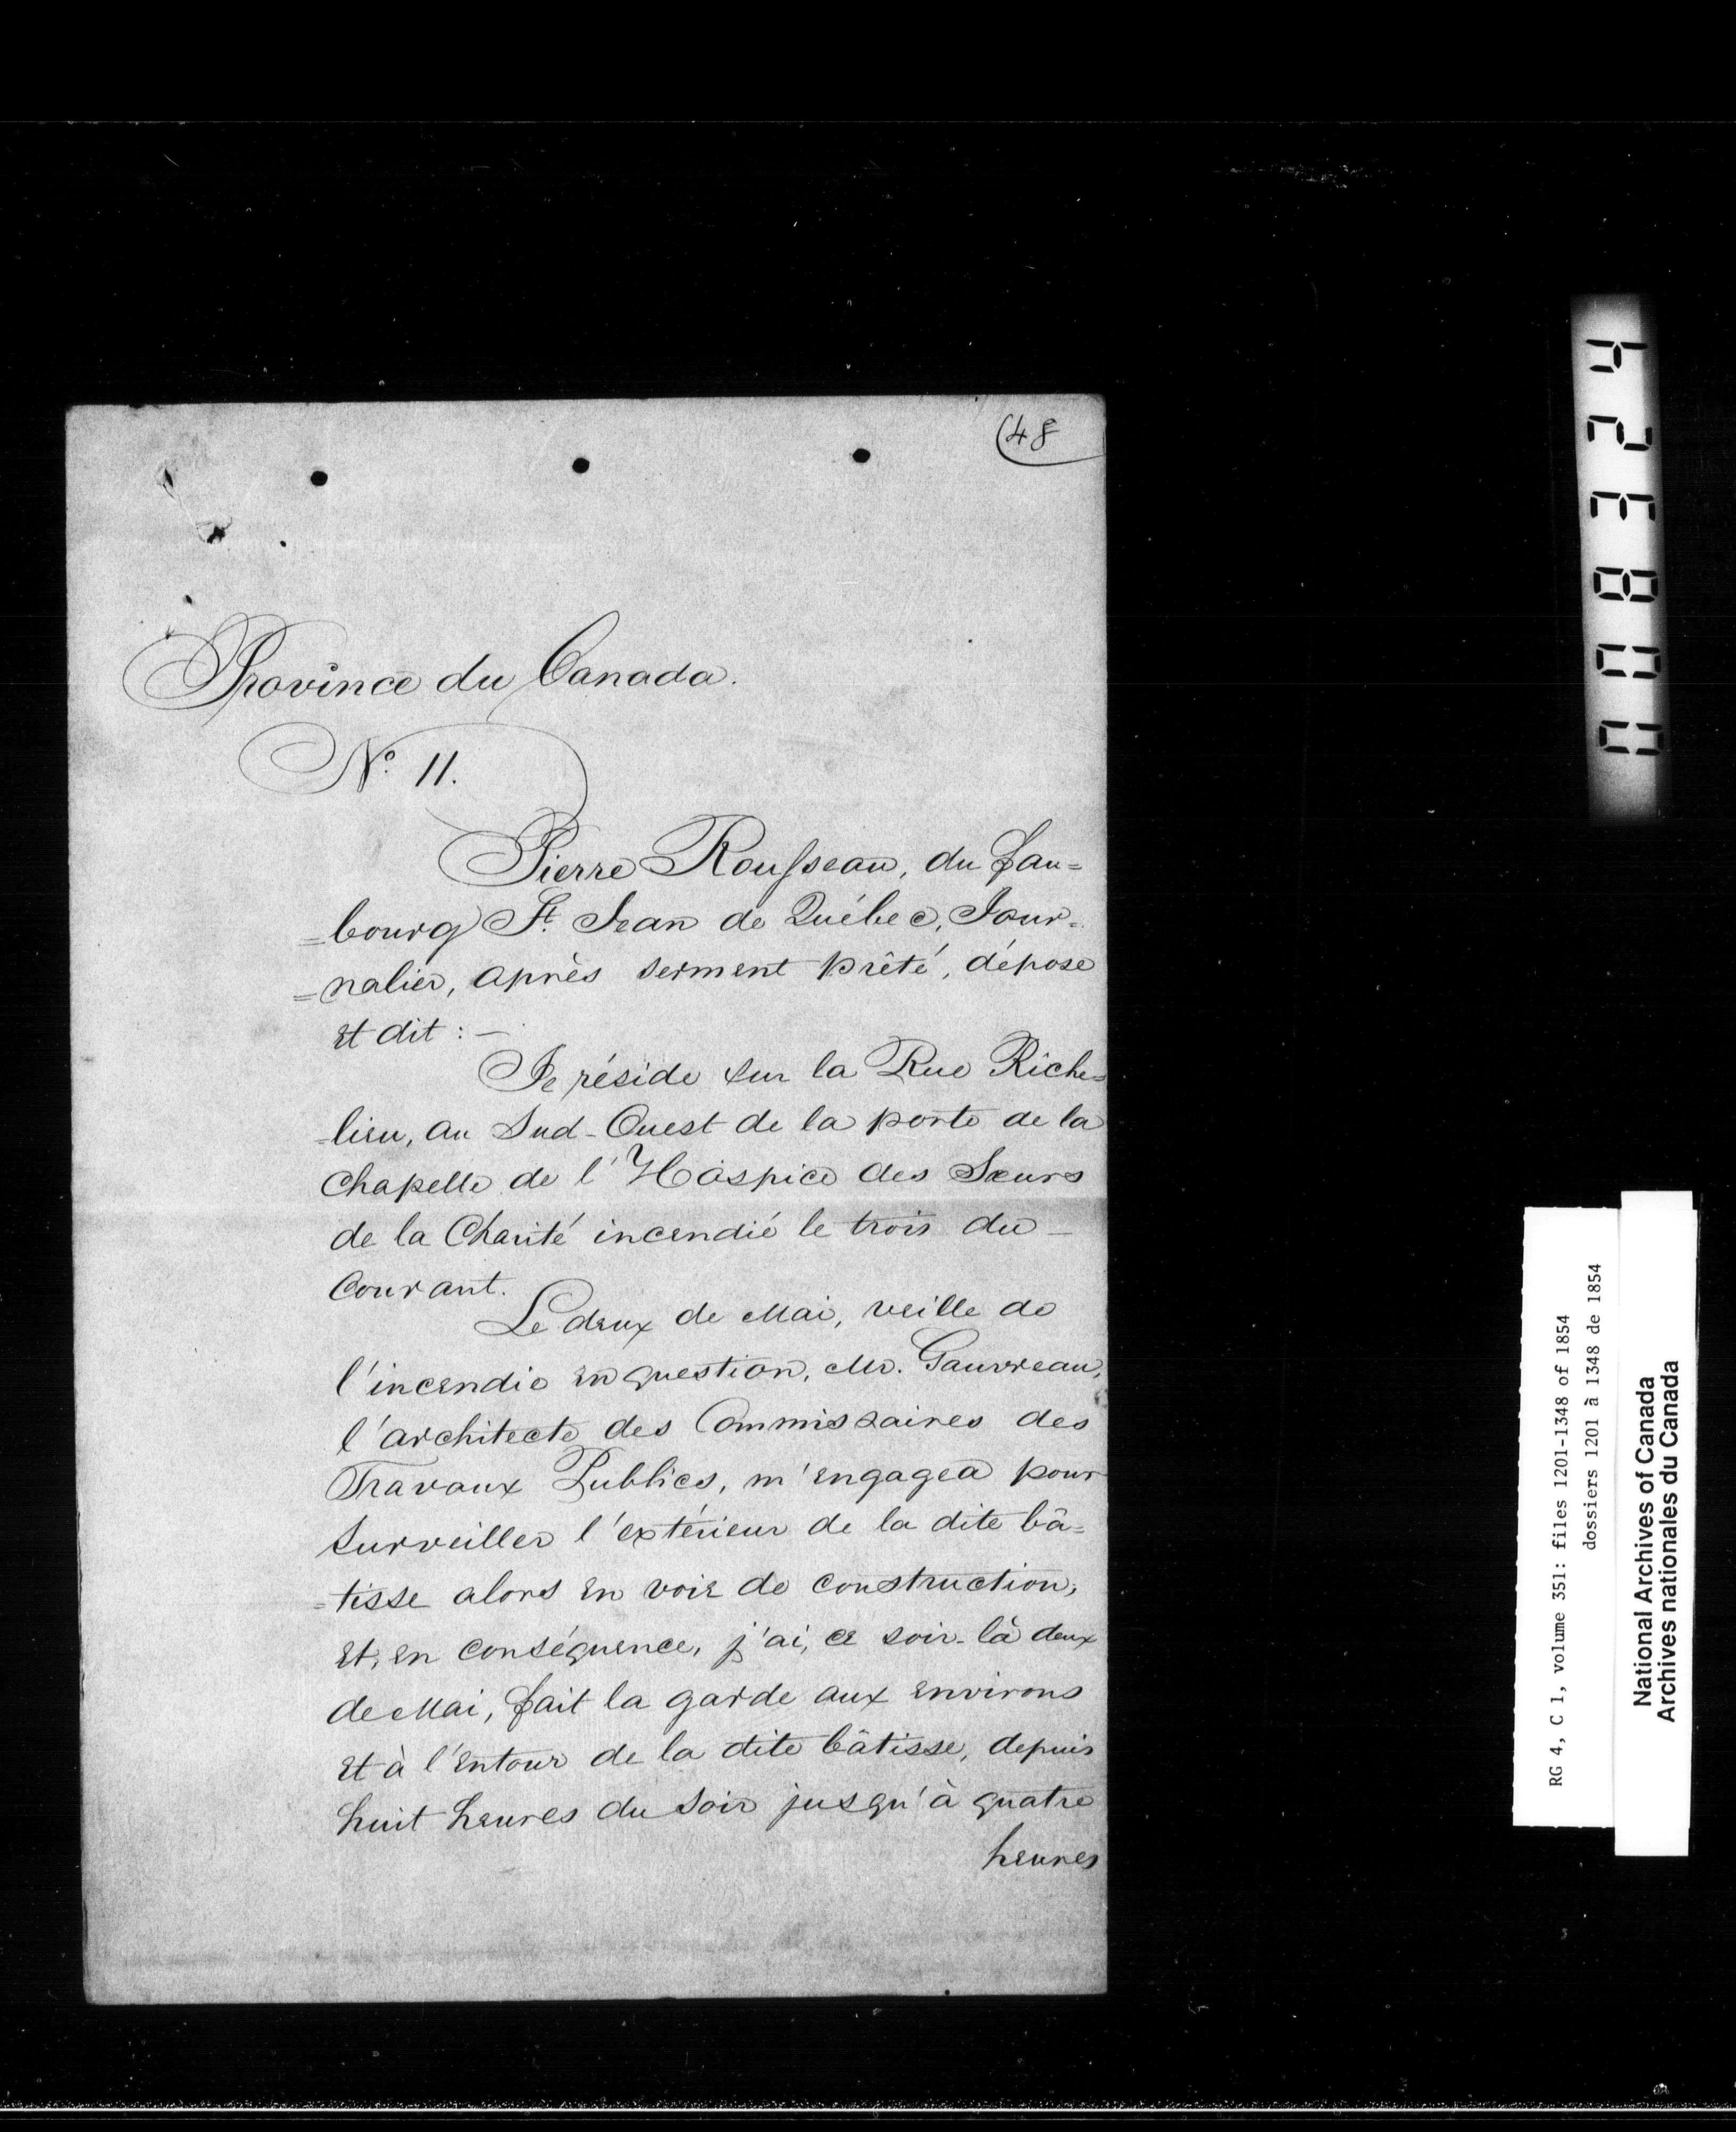 48
Province du Canada.
No. 11.
Pierre Rousseau, du fau=
=bourg St. Jean de Québec, Jour=
=nalier, après serment prêté, dépose
et dit : —
Je réside sur la Rue Riche=
=lieu, au Sud-Ouest de la porte de la
Chapelle de l'Hospice des Sœurs
de la Charité incendié le trois du —
Courant.
Le deux de Mai, veille de
l'incendie en question, Mr. Gauvreau,
l'architecte des Commissaires des
Travaux Publics, m'engagea pour
surveiller l'extérieur de la dite bâ=
=tisse alors en voie de construction,
et, en conséquence, j'ai, ce soir-là deux
de Mai, fait la garde aux environs
et à l'entour de la dite bâtisse, depuis
huit heures du soir jusqu'à quatre
heures
008324
RG 4, C 1, volume 351: files 1201-1348 of 1854
dossiers 1201 à 1348 de 1854
National Archives of Canada
Archives nationales du Canada